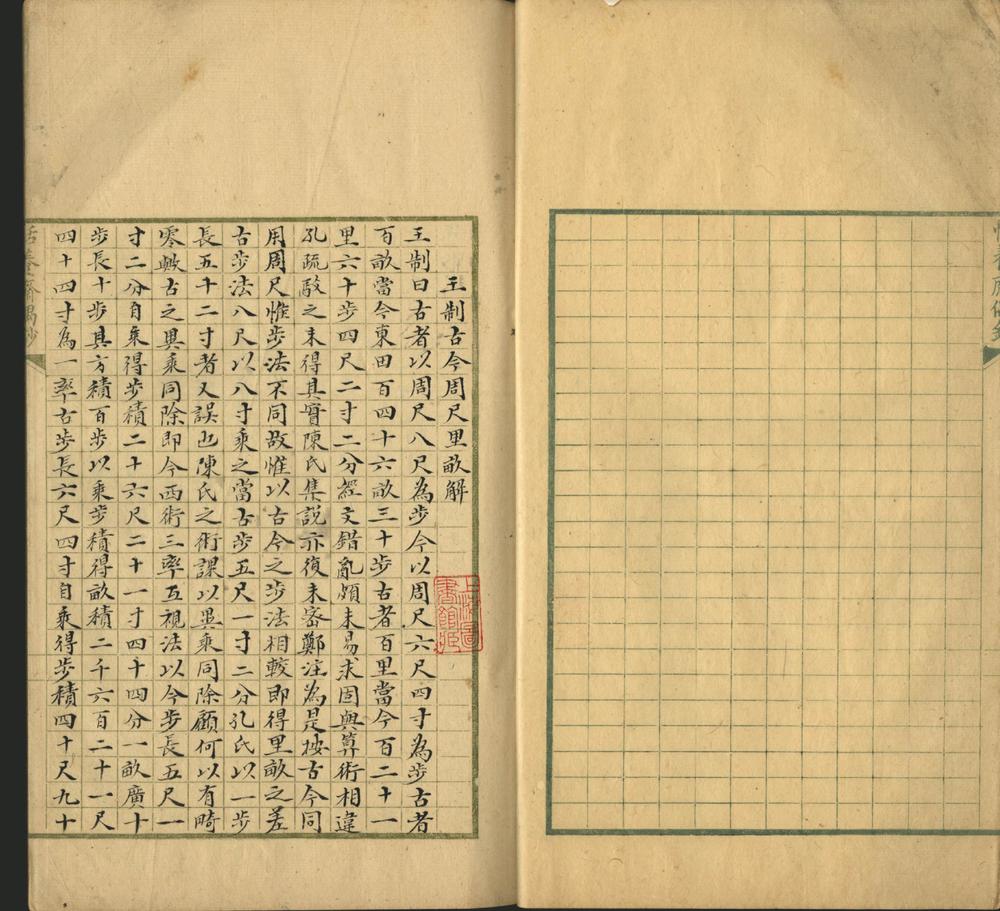 王制古今周尺里畝解
王制曰古者以周尺八尺為步今以周尺六尺四寸為步古者
百畝當今東田百四十六畝三十步古者百里當今百二十一
里六十步四尺二寸二分經文錯亂頗未易求固與算術相違
孔疏駁之未得其實陳氏集說亦復未審鄭注為是按古今同
用周尺惟步法不同故惟以古今之步法相較即得里畝之差
古步法八尺以八寸乘之當古步五尺一寸二分孔氏以一步
長五十二寸者又誤也陳氏之術課以異乘同除顧何以有畸
零歟古之異乘同除即今西術三率互視法以今步長五尺一
寸二分自乘得步積二十六尺二十一寸四十四分一畝廣十
步長十步其方積百步以乘步積得畝積二千六百二十一尺
四十四寸為一率古步長六尺四寸自乘得步積四十尺九十
上海圖書館所